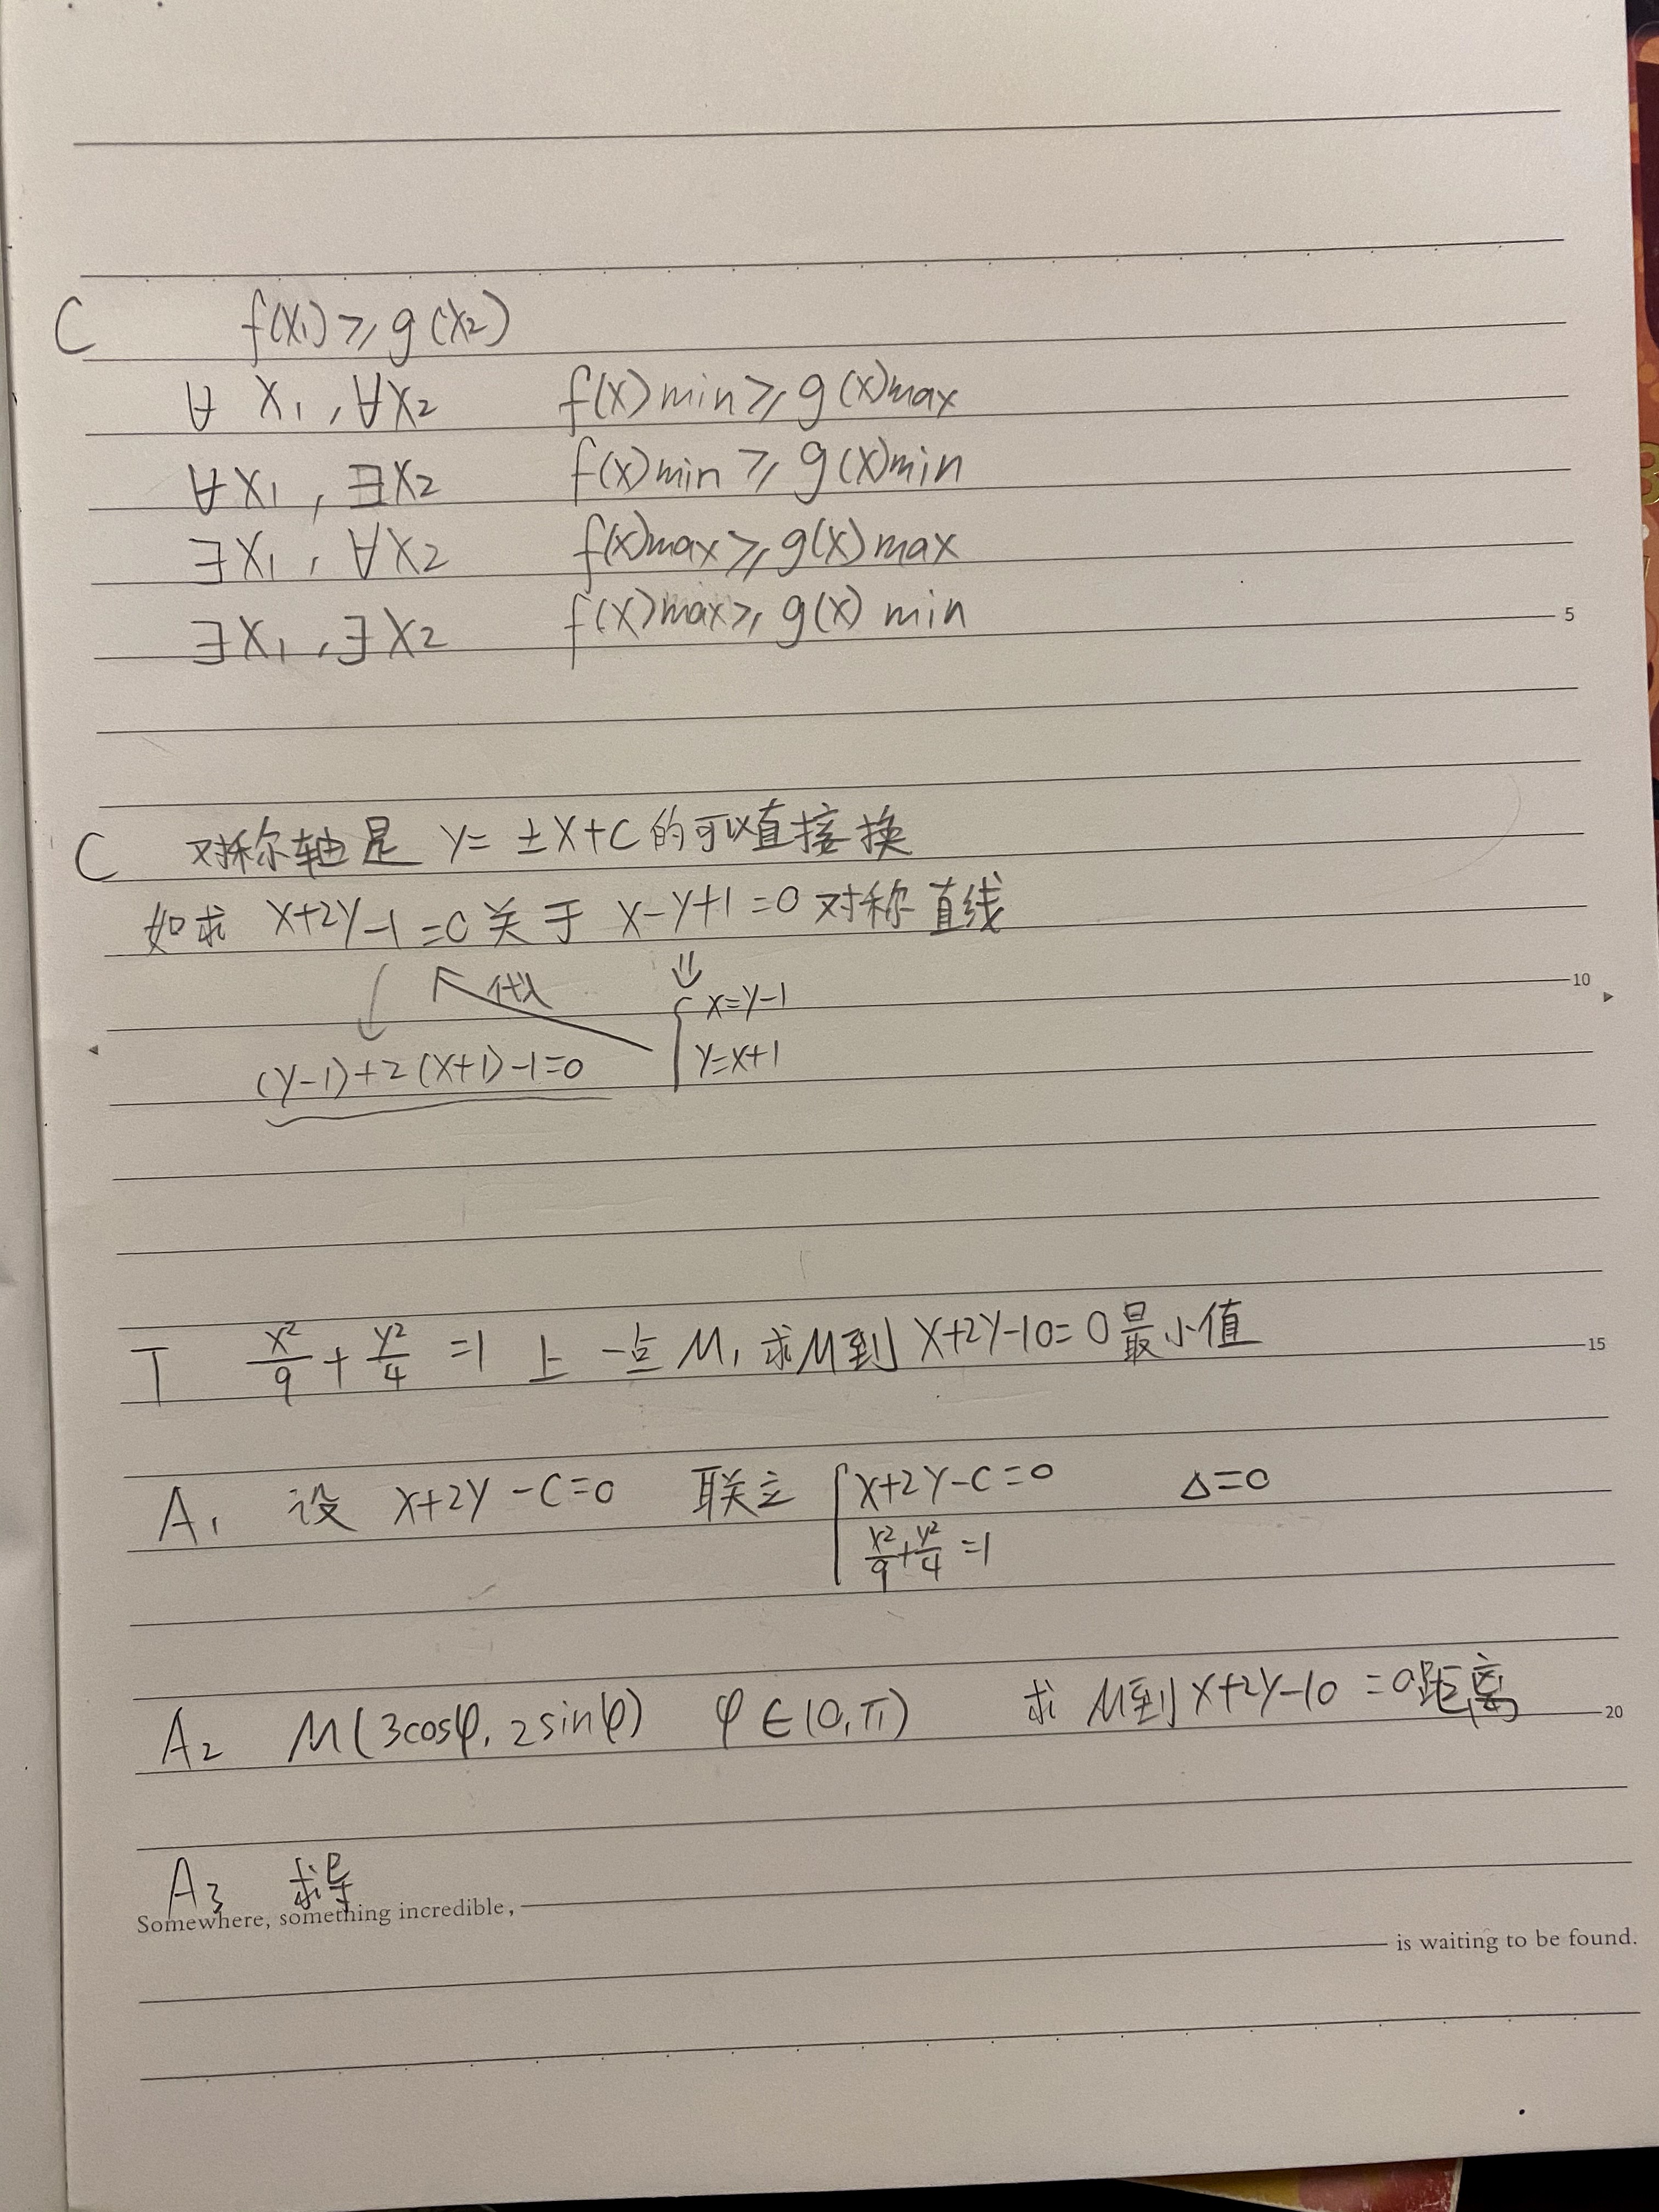 C f(x₁)≥g(x₂)
∀ x₁,∀x₂ f(x)min≥g(x)max
∀x₁,∃x₂ f(x)min≥g(x)min
∃x₁,∀x₂ f(x)max≥g(x)max
∃x₁,∃x₂ f(x)max≥g(x)min
5
C 对称轴是 y=±x+c的可直接换
如求 x+2y-1=0关于 x-y+1=0对称直线
10
⇓
{x=y-1
y=x+1
代入
(y-1)+2(x+1)-1=0
T x²/9+y²/4=1 上一点M,求M到x+2y-10=0最小值
15
A₁ 设 x+2y-c=0 联立 {x+2y-c=0 Δ=0
x²/9+y²/4=1
A₂ M(3cosφ,2sinφ) φ∈(0,π) 求M到x+2y-10=0距离
20
A₃ 求导
Somewhere, something incredible, is waiting to be found.